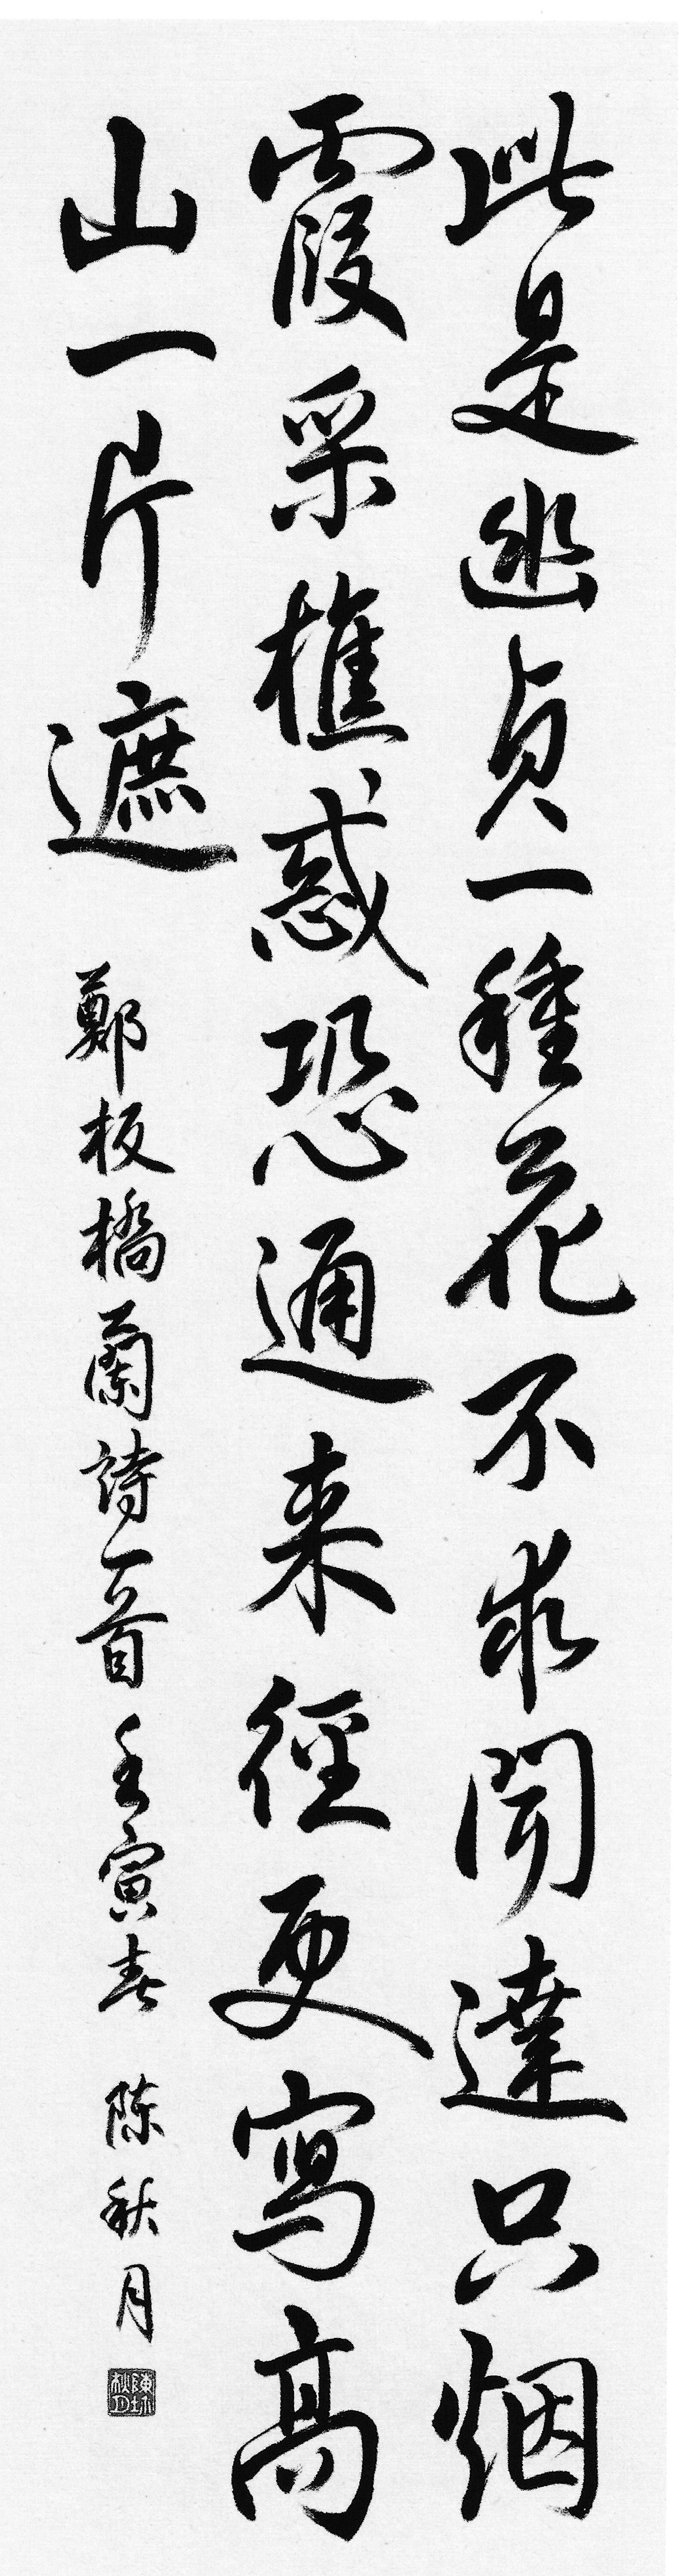 此是幽貞一種花不求聞達只烟
霞采樵惑恐通来徑更寫高
山一片遮
鄭板橋蘭詩一首壬寅春 陈秋月